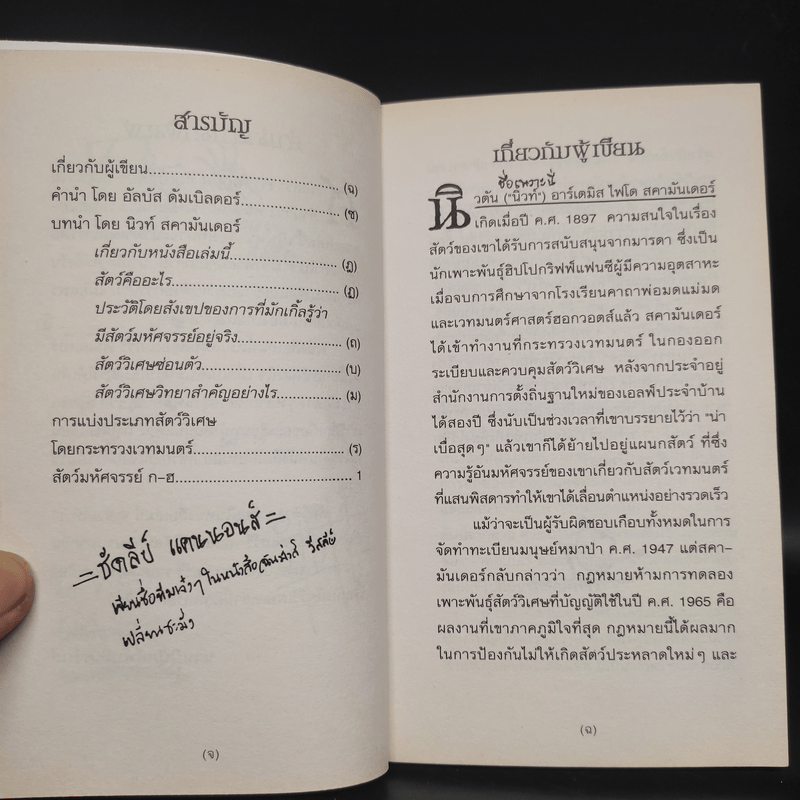 สารบัญ
เกี่ยวกับผู้เขียน.......................................... (ฉ)
คำนำ โดย อัลบัส ดัมเบิลดอร์....................... (ช)
บทนำ โดย นิวท์ สคามันเดอร์
เกี่ยวกับหนังสือเล่มนี้......................... (ฎ)
สัตว์คืออะไร...................................... (ฏ)
ประวัติโดยสังเขปของการที่มักเกิ้ลรู้ว่า
มีสัตว์มหัศจรรย์อยู่จริง....................... (ถ)
สัตว์วิเศษซ่อนตัว................................ (บ)
สัตว์วิเศษวิทยาสำคัญอย่างไร............... (ม)
การแบ่งประเภทสัตว์วิเศษ
โดยกระทรวงเวทมนตร์................................ (ร)
สัตว์มหัศจรรย์ ก-ฮ..................................... 1
=ชัดลีย์ แคนนอนส์=
(จ)
เกี่ยวกับผู้เขียน
ชื่อเพราะนี่
นิวตัน ("นิวท์") อาร์เตมิส ไฟโด สคามันเดอร์
เกิดเมื่อปี ค.ศ. 1897 ความสนใจในเรื่อง
สัตว์ของเขาได้รับการสนับสนุนจากมารดา ซึ่งเป็น
นักเพาะพันธุ์ฮิปโปกริฟฟ์แฟนซีผู้มีความอุตสาหะ
เมื่อจบการศึกษาจากโรงเรียนคาถาพ่อมดแม่มด
และเวทมนตร์ศาสตร์ฮอกวอตส์แล้ว สคามันเดอร์
ได้เข้าทำงานที่กระทรวงเวทมนตร์ ในกองออก
ระเบียบและควบคุมสัตว์วิเศษ หลังจากประจำอยู่
สำนักงานการตั้งถิ่นฐานใหม่ของเอลฟ์ประจำบ้าน
ได้สองปี ซึ่งนับเป็นช่วงเวลาที่เขาบรรยายไว้ว่า "น่า
เบื่อสุดๆ" แล้วเขาก็ได้ย้ายไปอยู่แผนกสัตว์ ที่ซึ่ง
ความรู้อันมหัศจรรย์ของเขาเกี่ยวกับสัตว์เวทมนตร์
ที่แสนพิสดารทำให้เขาได้เลื่อนตำแหน่งอย่างรวดเร็ว
แม้ว่าจะเป็นผู้รับผิดชอบเกือบทั้งหมดในการ
จัดทำทะเบียนมนุษย์หมาป่า ค.ศ. 1947 แต่สคา-
มันเดอร์กลับกล่าวว่า กฎหมายห้ามการทดลอง
เพาะพันธุ์สัตว์วิเศษที่บัญญัติใช้ในปี ค.ศ. 1965 คือ
ผลงานที่เขาภาคภูมิใจที่สุด กฎหมายนี้ได้ผลมาก
ในการป้องกันไม่ให้เกิดสัตว์ประหลาดใหม่ๆ และ
(ฉ)